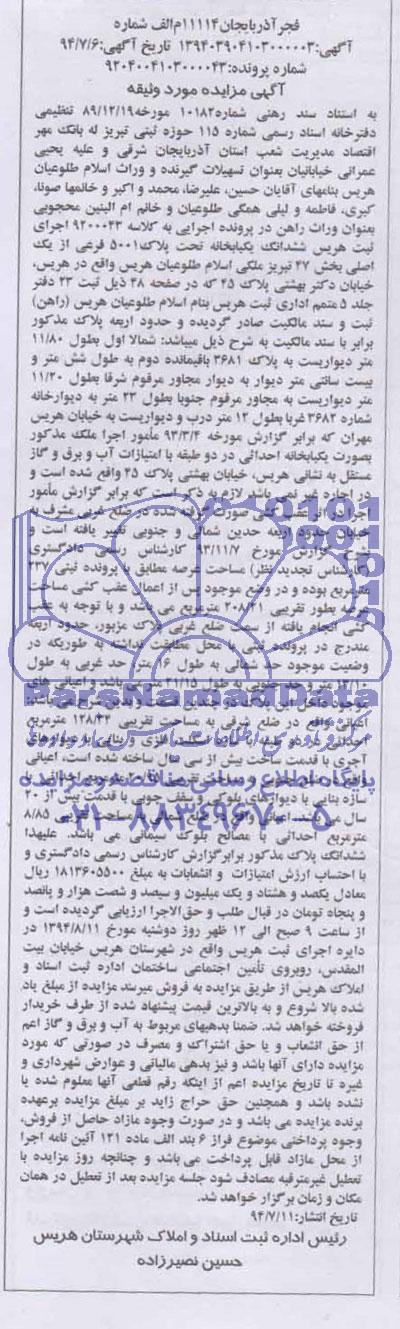 فجر آذربایجان ۱۱۱۱۴م الف شماره
آگهی: ۱۳۹۴۰۳۹۰۴۱۰۳۰۰۰۰۰۳ تاریخ آگهی: ۹۴/۷/۶
شماره پرونده: ۹۲۰۴۰۰۴۱۰۳۰۰۰۰۴۳
آگهی مزایده مورد وثیقه
به استناد سند رهنی شماره ۱۰۱۸۲ مورخه ۸۹/۱۲/۱۹ تنظیمی
دفترخانه اسناد رسمی شماره ۱۱۵ حوزه ثبتی تبریز له بانک مهر
اقتصاد مدیریت شعب استان آذربایجان شرقی و علیه یحیی
عمرانی خیابانیان بعنوان تسهیلات گیرنده و وراث اسلام طلوعیان
هریس بنامهای آقایان حسین، علیرضا، محمد و اکبر و خانمها صونا،
کبری، فاطمه و لیلی همگی طلوعیان و خانم ام البنین محجوبی
بعنوان وراث راهن در پرونده اجرایی به کلاسه ۹۲۰۰۰۴۳ اجرای
ثبت هریس ششدانگ یکبابخانه تحت پلاک ۵۰۰۱ فرعی از یک
اصلی بخش ۴۷ تبریز ملکی اسلام طلوعیان هریس واقع در هریس،
خیابان دکتر بهشتی پلاک ۴۵ که در صفحه ۴۸ ذیل ثبت ۲۳ دفتر
جلد ۵ متمم اداری ثبت هریس بنام اسلام طلوعیان هریس (راهن)
ثبت و سند مالکیت صادر گردیده و حدود اربعه پلاک مذکور
برابر با سند مالکیت به شرح ذیل میباشد: شمالا اول بطول ۱۱/۸۰
متر دیواریست به پلاک ۳۶۸۱ باقیمانده دوم به طول شش متر و
بیست سانتی متر دیوار به دیوار مجاور مرقوم شرقا بطول ۱۱/۲۰
متر دیواریست به مجاور مرقوم جنوبا بطول ۲۳ متر به دیوارخانه
شماره ۳۶۸۲ غربا بطول ۱۲ متر درب و دیواریست به خیابان هریس
مهران که برابر گزارش مورخه ۹۳/۳/۴ مأمور اجرا ملک مذکور
بصورت یکبابخانه احداثی در دو طبقه با امتیازات آب و برق و گاز
مستقل به نشانی هریس، خیابان بهشتی پلاک ۴۵ واقع شده است و
در اجاره غیر نمی باشد لازم به ذکر است که برابر گزارش مأمور
اجرا در عقب کشی صورت گرفته شده در ضلع غربی مشرف به
خیابان حدود اربعه حدین شمالی و جنوبی تغییر یافته است و
بشرح گزارش مورخ ۹۳/۱۱/۷ کارشناس رسمی دادگستری
(کارشناس تجدید نظر) مساحت عرصه مطابق با پرونده ثبتی ۲۳۷
مترمربع بوده و در وضع موجود پس از اعمال عقب کشی مساحت
عرصه بطور تقریبی ۲۰۸/۲۱ مترمربع می باشد و با توجه به عقب
کشی انجام یافته از سمت ضلع غربی پلاک مزبور، حدود اربعه
مندرج در پرونده ثبتی با محل مطابقت نداشته به طوریکه در
وضعیت موجود حد شمالی به طول ۱۶ متر حد غربی به طول
متر و حد جنوبی به طول ۲۱/۱۵ متر می باشد و اعیانی های
موجود داخل این پلاک در چندین قسمت و بدین شرح می باشد:
اعیانی واقع در ضلع شرقی به مساحت تقریبی ۱۲۸/۳۲ مترمربع
احداثی در دو طبقه با سازه اسکلت فلزی و بنایی به دیوارهای
آجری با قدمت ساخت بیش از سی سال ساخته شده است، اعیانی
سازه بنایی با دیوارهای بلوکی و سقف چوبی با قدمت بیش از ۲۰
سال می باشد. اعیانی واقع در ضلع شمالی به مساحت تقریبی ۸/۸۵
مترمربع احداثی با مصالح بلوک سیمانی می باشد. علیهذا
ششدانگ پلاک مذکور برابر گزارش کارشناس رسمی دادگستری و
با احتساب ارزش امتیازات و انشعابات به مبلغ ۱۸۱۳۶۰۵۵۰۰ ریال
معادل یکصد و هشتاد و یک میلیون و سیصد و شصت هزار و پانصد
و پنجاه تومان در قبال طلب و حق الاجرا ارزیابی گردیده است و
از ساعت ۹ صبح الی ۱۲ ظهر روز دوشنبه مورخ ۱۳۹۴/۸/۱۱ در
دایره اجرای ثبت هریس واقع در شهرستان هریس خیابان بیت
المقدس، روبروی تأمین اجتماعی ساختمان اداره ثبت اسناد و
املاک هریس از طریق مزایده به فروش میرسد مزایده از مبلغ یاد
شده بالا شروع و به بالاترین قیمت پیشنهاد شده از طرف خریدار
فروخته خواهد شد. ضمنا بدهیهای مربوط به آب و برق و گاز اعم
از حق انشعاب و یا حق اشتراک و مصرف در صورتی که مورد
مزایده دارای آنها باشد و نیز بدهی مالیاتی و عوارض شهرداری و
غیره تا تاریخ مزایده اعم از اینکه رقم قطعی آنها معلوم شده یا
نشده باشد و همچنین حق حراج زاید بر مبلغ مزایده برعهده
برنده مزایده می باشد و در صورت وجود مازاد حاصل از فروش،
وجوه پرداختی موضوع فراز ۶ بند الف ماده ۱۲۱ آئین نامه اجرا
از محل مازاد قابل پرداخت می باشد و چنانچه روز مزایده با
تعطیل غیرمترقبه مصادف شود جلسه مزایده بعد از تعطیل در همان
مکان و زمان برگزار خواهد شد.
تاریخ انتشار: ۹۴/۷/۱۱
رئیس اداره ثبت اسناد و املاک شهرستان هریس
حسین نصیرزاده
ParsNamadData
پایگاه اطلاع رسانی مناقصه و مزایده
۰۲۱-۸۸۳۴۹۶۷۰-۵